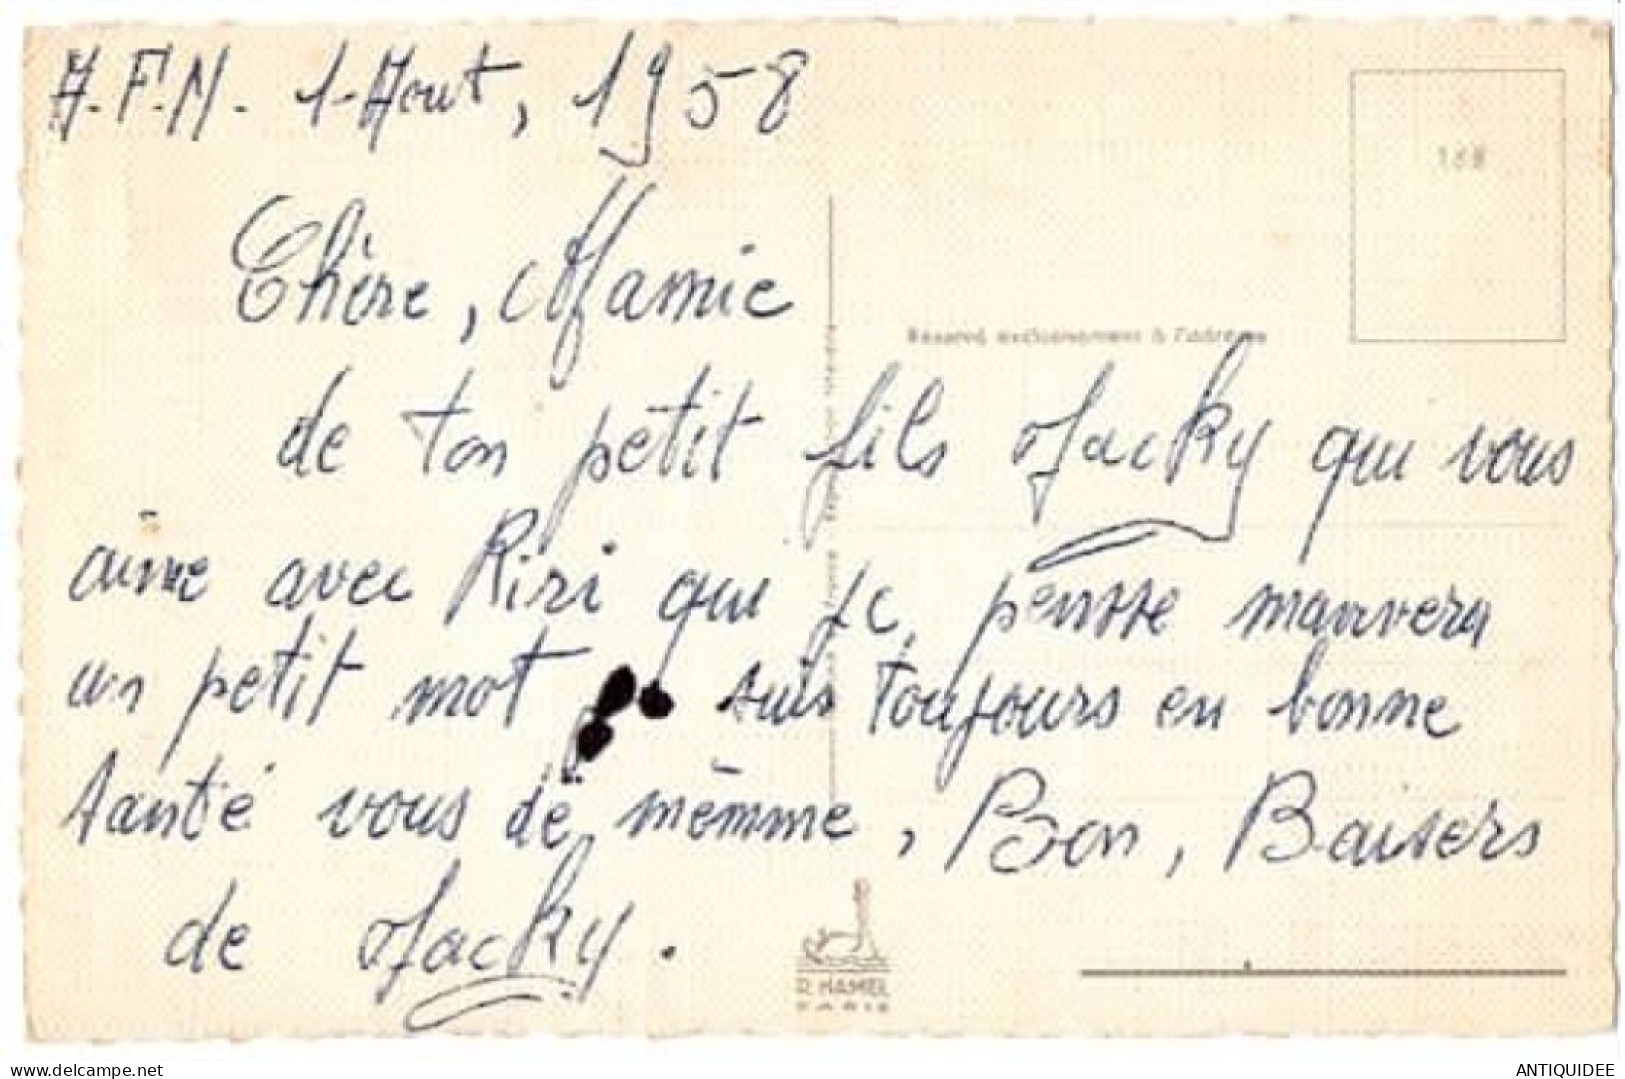 A.F.N. 1-Aout, 1958
168
Chère, Mamie
Réservé exclusivement à l'adresse
de ton petit fils Jacky qui vous
aime avec Riri qui je, pensse m'anvera
un petit mot suis toujours en bonne
santé vous de mêmme, Bon, Baisers
de Jacky.
R. HAMEL
PARIS
ANTIQUIDEE